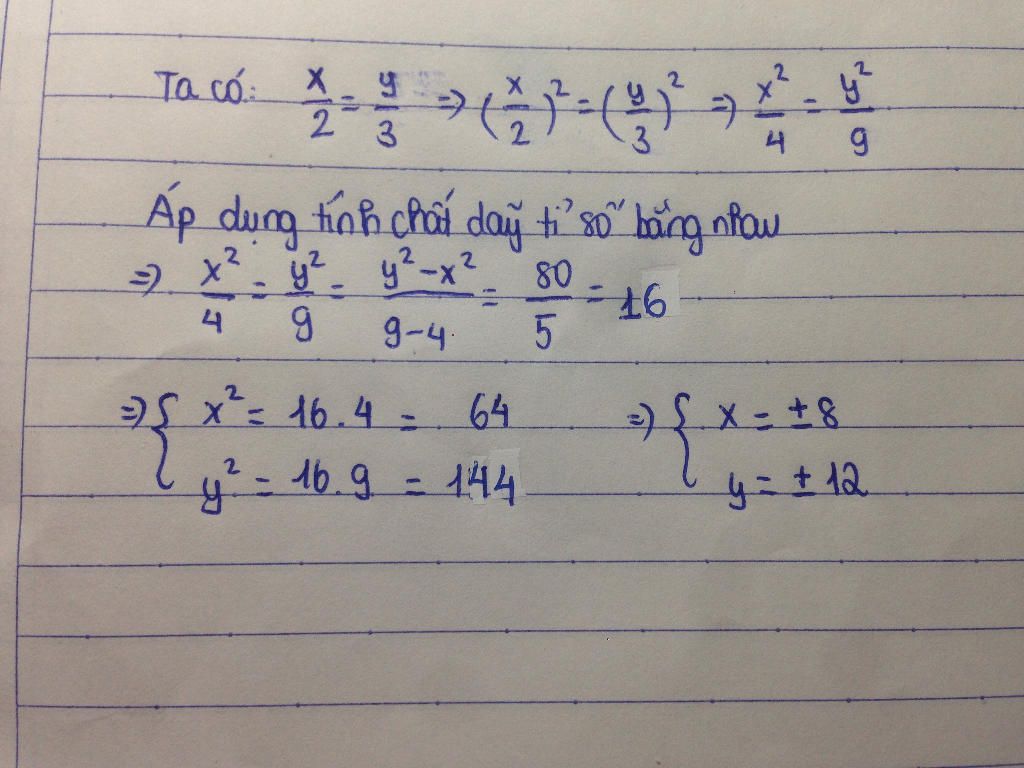 Ta có: x/2 = y/3 => (x/2)² = (y/3)² => x²/4 = y²/9
Áp dụng tính chất dãy tỉ số bằng nhau
=> x²/4 = y²/9 = y²-x²/9-4 = 80/5 = 16
=> { x² = 16.4 = 64 => { x = ±8
y² = 16.9 = 144 y = ±12